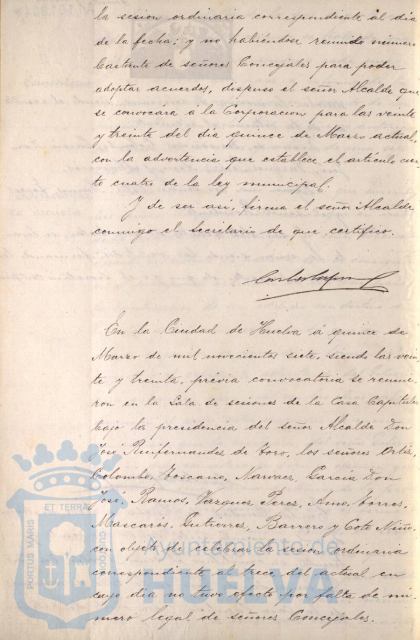 la sesion ordinaria correspondiente al dia
de la fecha; y no habiéndose reunido número
bastante de señores Concejales para poder
adoptar acuerdos, dispuso el señor Alcalde que
se convocára á la Corporacion para las veinte
y treinta del dia quince de Marzo actual,
con la advertencia que establece el artículo cien-
to cuatro de la ley municipal.
Y de ser asi, firma el señor Alcalde
conmigo el Secretario de que certifico.
En la Ciudad de Huelva á quince de
Marzo de mil novecientos siete, siendo las vein-
te y treinta, prévia convocatoria se reunie-
ron en la Sala de sesiones de la Casa Capitular
bajo la presidencia del señor Alcalde Don
José Ruifernandez de Toro, los señores Ortiz,
Colombo, Toscano, Narvaez, Garcia Don
José, Ramos, Vazquez Perez, Amo, Torres,
Mascarós, Gutierrez, Barrero y Coto Niño,
con objeto de celebrar la sesion ordinaria
correspondiente al trece del actual en
cuyo dia no tuvo efecto por falta de nú-
mero legal de señores Concejales.
PORTUS MARIS
ET TERRAE
CUSTODIA
Ayuntamiento de
HUELVA